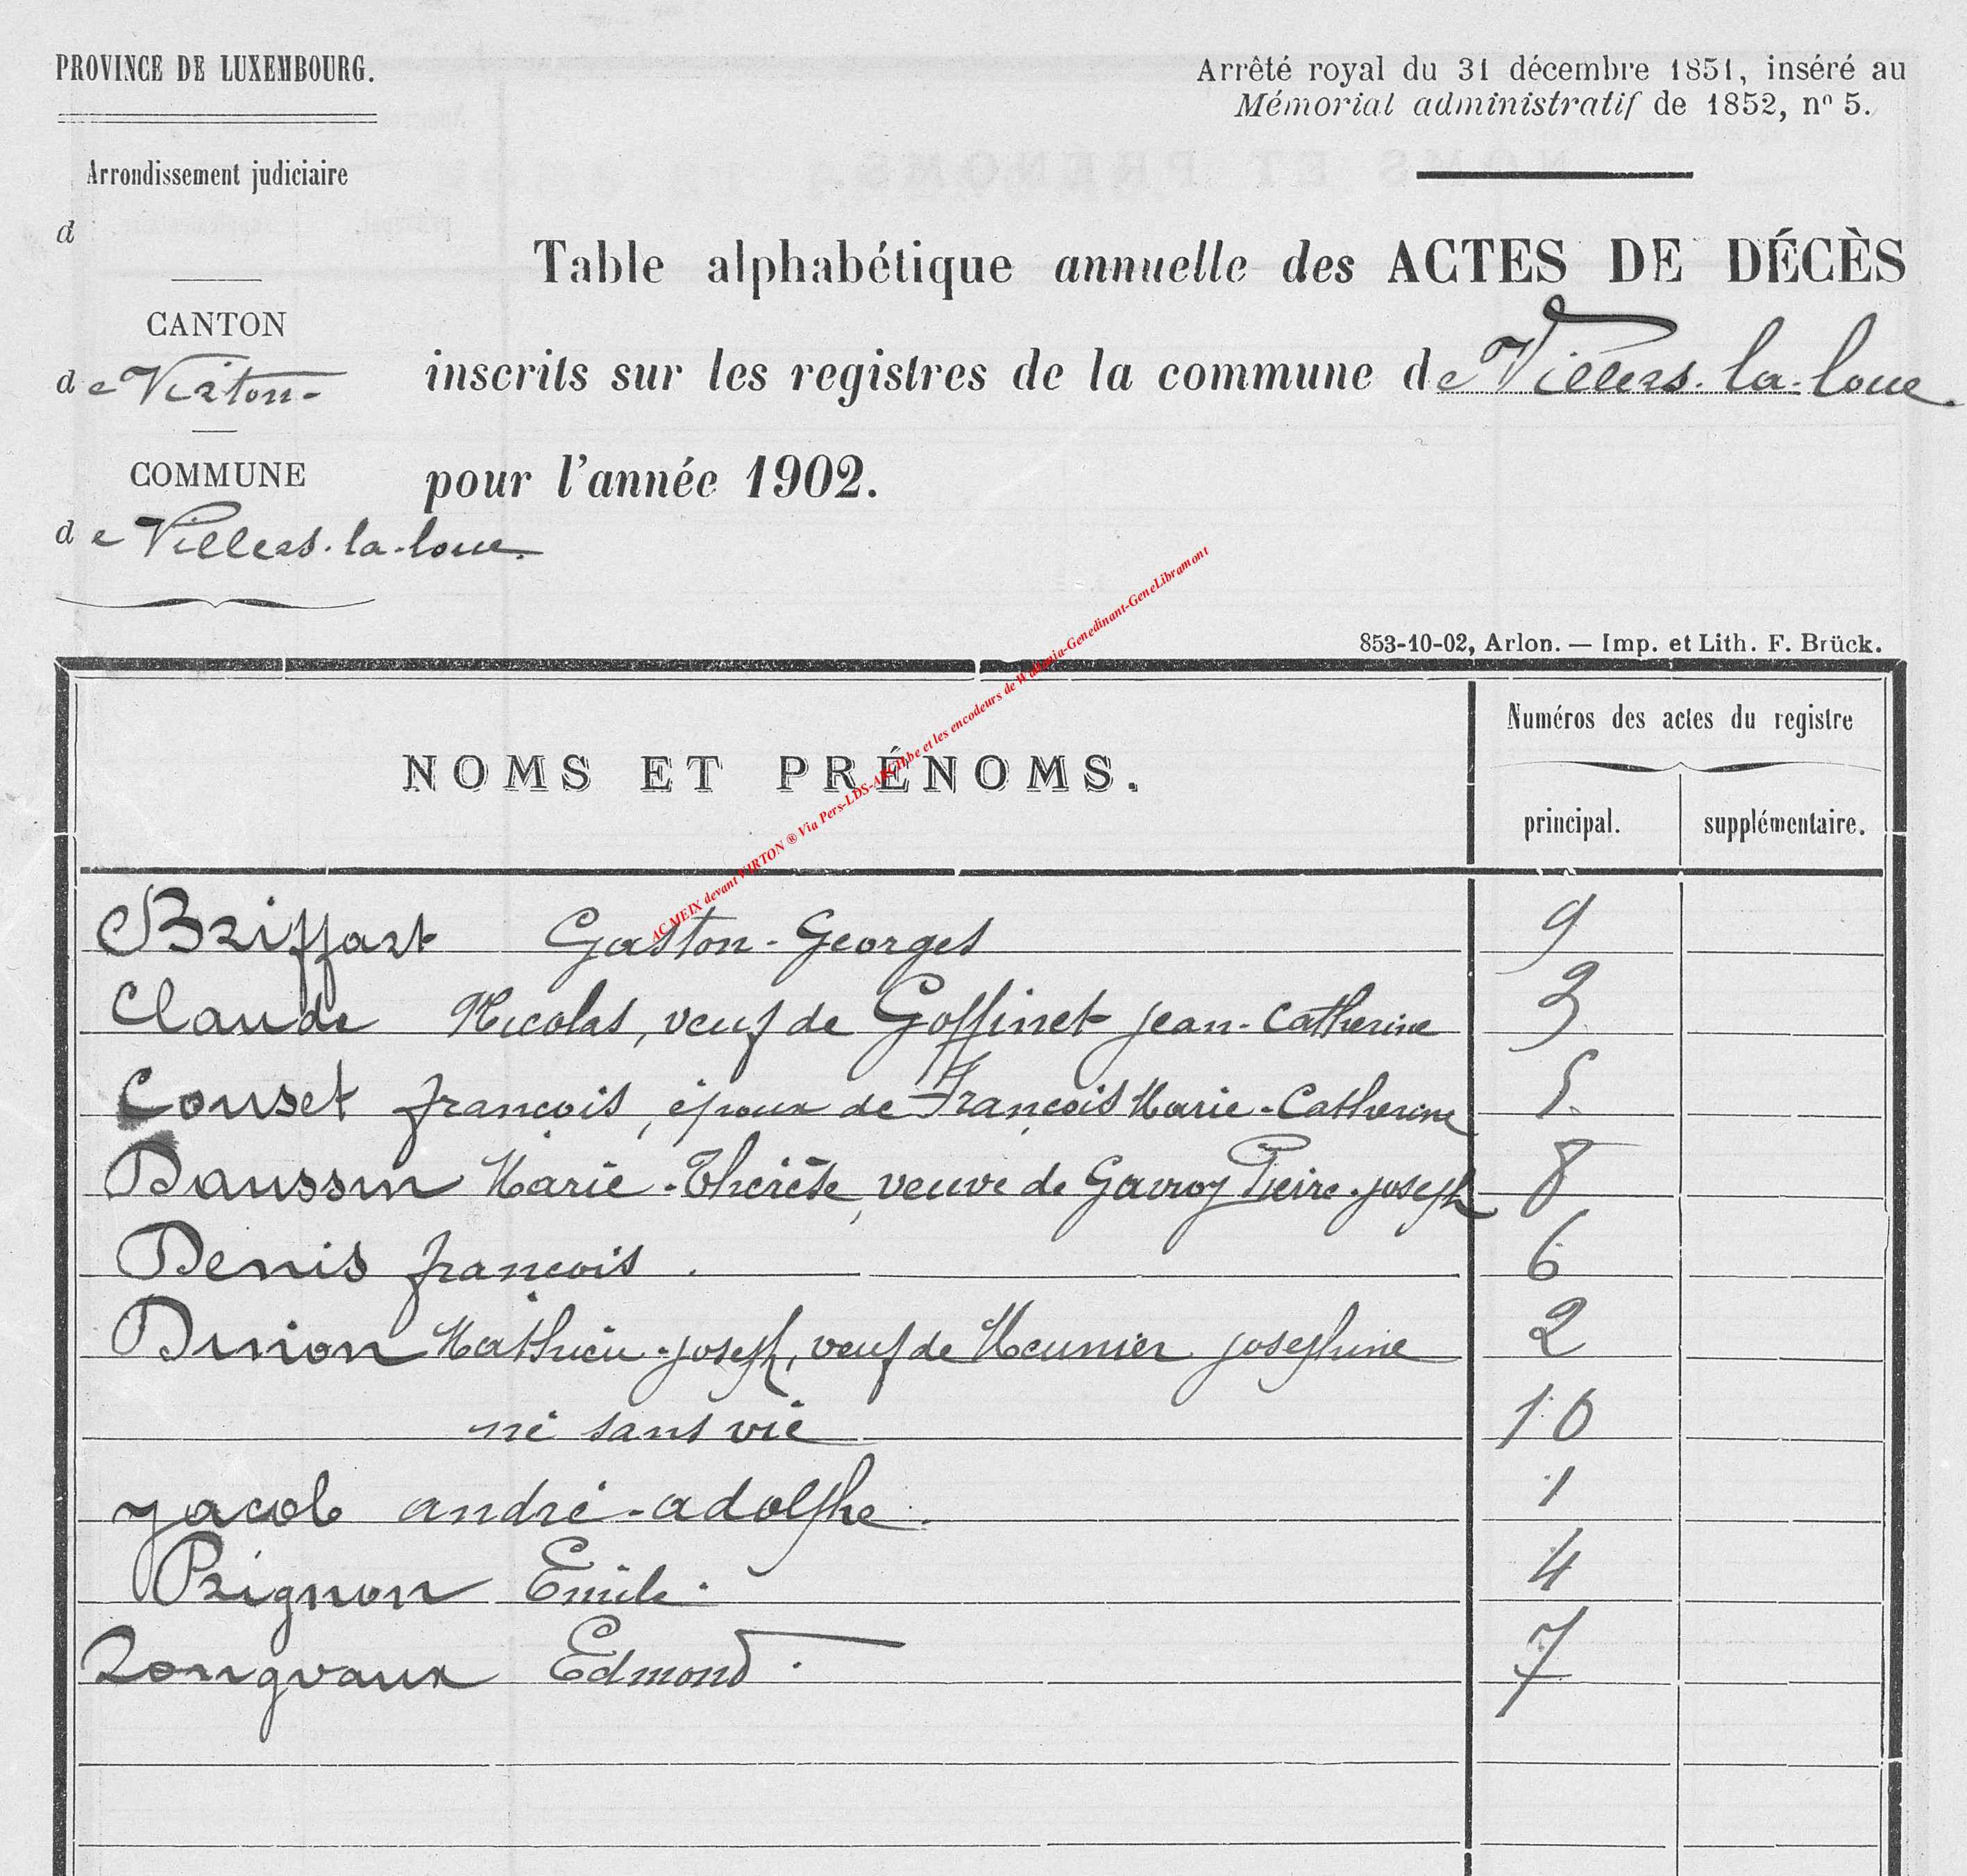 PROVINCE DE LUXEMBOURG.
Arrondissement judiciaire
d
CANTON
de Virton
COMMUNE
de Villers-la-loue.
Arrêté royal du 31 décembre 1851, inséré au
Mémorial administratif de 1852, nº 5.
Table alphabétique annuelle des ACTES DE DÉCÈS
inscrits sur les registres de la commune de Villers-la-loue.
pour l'année 1902.
853-10-02, Arlon. — Imp. et Lith. F. Brück.
AC MEIX devant VIRTON ® Via Pers-LDS-ARCH.be et les encodeurs de Wallonia-Genedinant-GeneLibramont
NOMS ET PRÉNOMS.
Numéros des actes du registre
principal. supplémentaire.
Briffart Gaston-Georges 9
Claude Nicolas, veuf de Goffinet jean-catherine 3
Couset françois, époux de François Marie-Catherine 5
Daussin Marie-Thérèse, veuve de Gavroy Pierre-joseph 8
Denis françois. 6
Dinon Mathieu-joseph, veuf de Meunier josephine 2
né sans vie 10
jacob andré-adolphe. 1
Prignon Emile. 4
Longvaux Edmond. 7